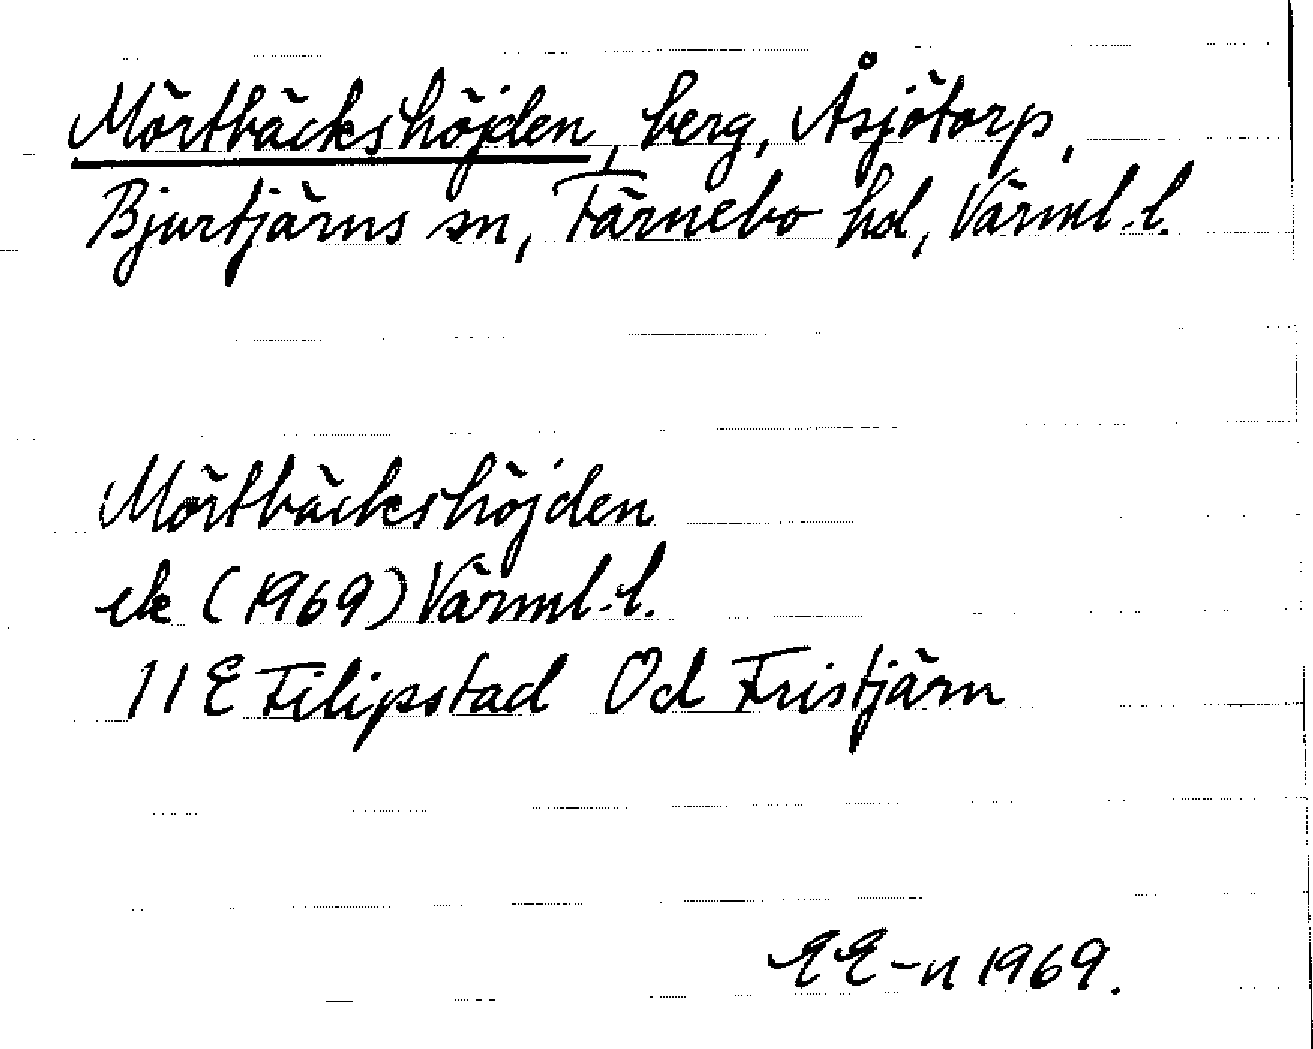 Mörtbäckshöjden, berg, Åsjötorp,
Bjurtjärns sn, Färnebo hd, Värml. l.
Mörtbäckshöjden
ek (1969) Värml. l.
11E Filipstad Od Fristjärn
EE-n 1969.